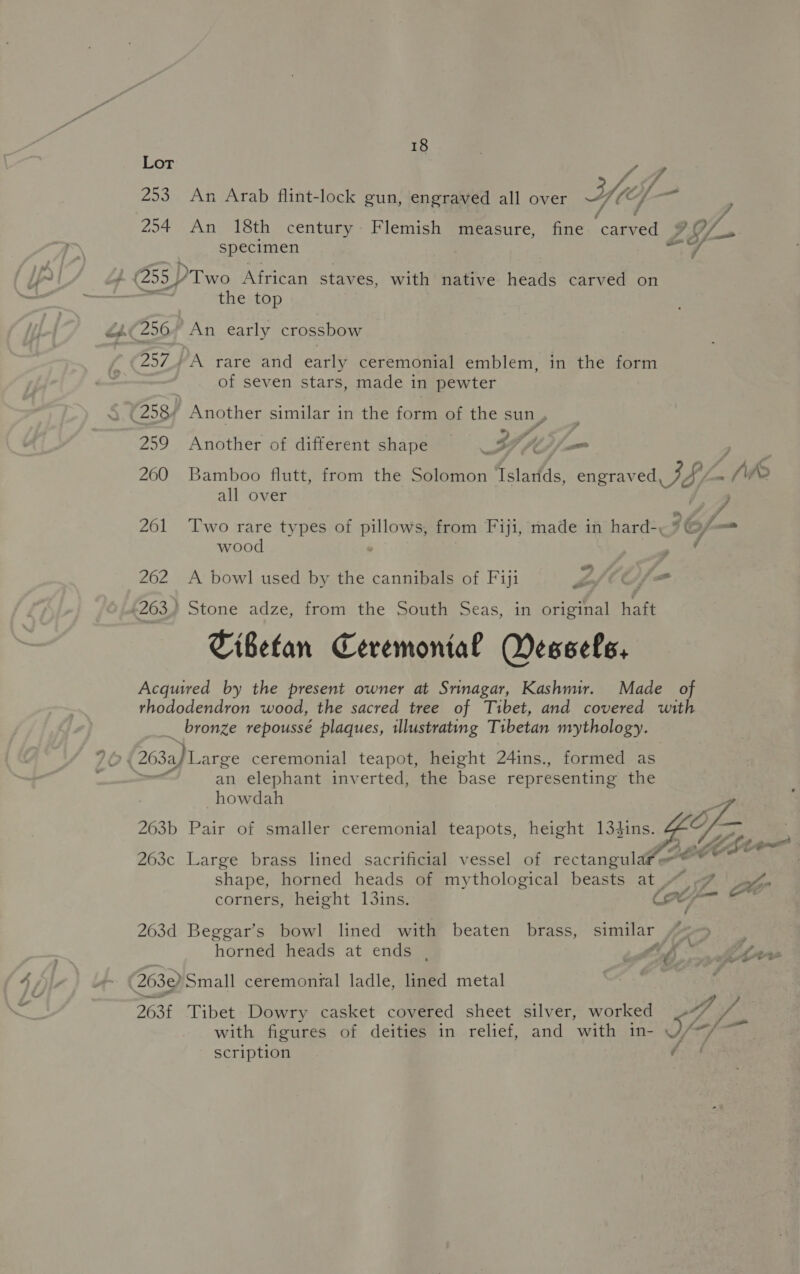 18
Lot
253 An Arab flint-lock gun, engraved all over
254 An 18th century Flemish measure, fine carved
specimen
255 Two African staves, with native heads carved on
the top
256 An early crossbow
257 A rare and early ceremonial emblem, in the form
of seven stars, made in pewter
258 Another similar in the form of the sun
259 Another of different shape
260 Bamboo flutt, from the Solomon Islands, engraved
all over
261 Two rare types of pillows, from Fiji, made in hard-
wood
262 A bowl used by the cannibals of Fiji
263 Stone adze, from the South Seas, in original haft
Tibetan Ceremonial Vessels.
Acquired by the present owner at Srinagar, Kashmir. Made of
rhododendron wood, the sacred tree of Tibet, and covered with
bronze repoussé plaques, illustrating Tibetan mythology.
263a Large ceremonial teapot, height 24ins., formed as
an elephant inverted, the base representing the
howdah
263b Pair of smaller ceremonial teapots, height 13½ins.
263c Large brass lined sacrificial vessel of rectangular
shape, horned heads of mythological beasts at
corners, height 13ins.
263d Beggar's bowl lined with beaten brass, similar
horned heads at ends
263e Small ceremonial ladle, lined metal
263f Tibet Dowry casket covered sheet silver, worked
with figures of deities in relief, and with in-
scription